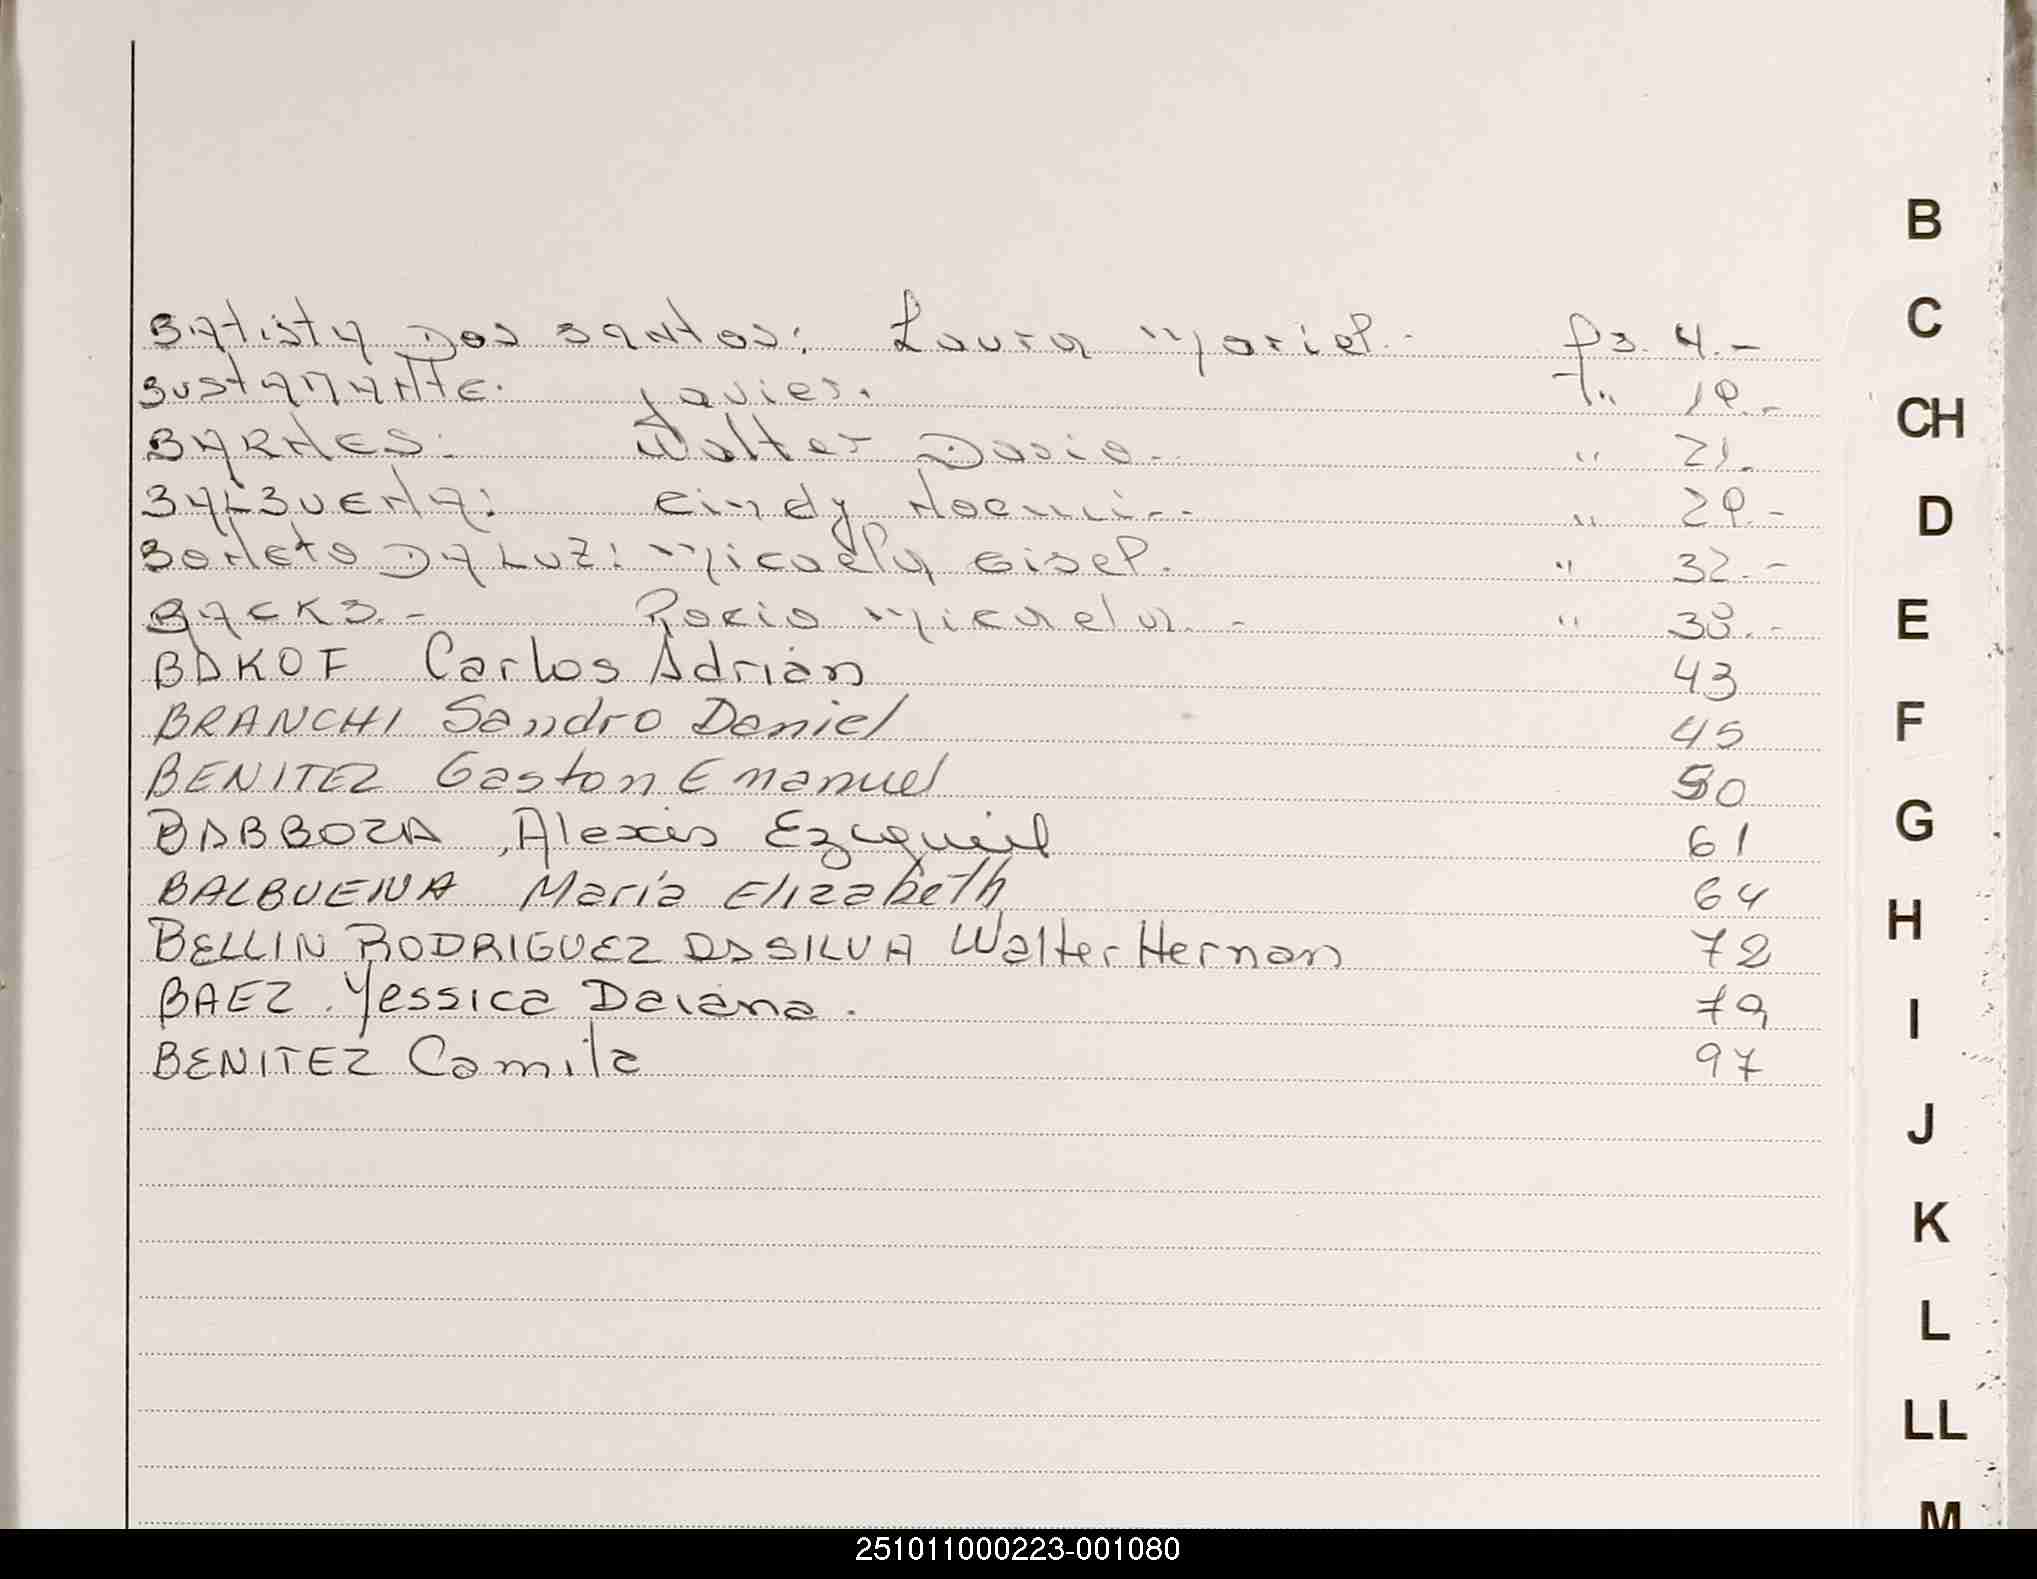 BAtistA Dos SANtos: Laura Mariel. fs. 4.-
BUStAMANTE. Javier. " 19.-
BARNES: Walter Dario.- " 21.
BALBUENA: Cindy Noemi.-- " 29.-
BONETO DA LUZ: Micaela Gisel. " 32.-
BACKS.- Rocio Micaela.- " 38.-
BAKOF Carlos Adrián 43
BRANCHI Sandro Daniel 45
BENITEZ Gaston Emanuel 50
BABBOZA, Alexis Ezequiel 61
BALBUENA María Elizabeth 64
BELLIN RODRIGUEZ DASILVA Walter Hernan 72
BAEZ. Yessica Daiana. 79
BENITEZ Camila 97
B
C
CH
D
E
F
G
H
I
J
K
L
LL
M
251011000223-001080